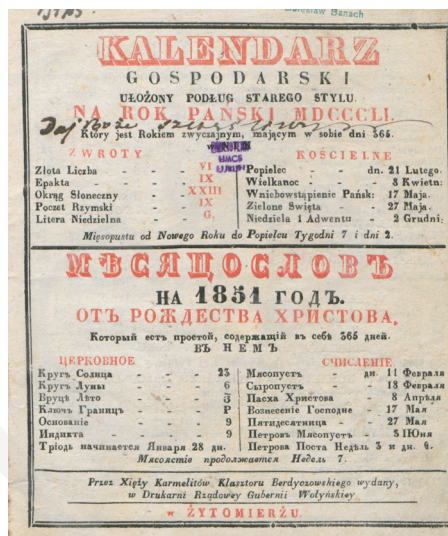 Bolesław Banach
KALENDARZ
GOSPODARSKI
UŁOŻONY PODŁUG STAREGO STYLU.
NA ROK PAŃSKI MDCCCLI.
Daj Boże
Który jest Rokiem zwyczajnym, mającym w sobie dni 365.
UMCS
LUBLIN
ZWROTY KOŚCIELNE
Złota Liczba - - - VI
Epakta - - - IX
Okrąg Słoneczny - - XXIII
Poczet Rzymski - - IX
Litera Niedzielna - - G.
Popielec - - dn. 21 Lutego.
Wielkanoc - - 8 Kwietn:
Wniebowstąpienie Pańsk: 17 Maja.
Zielone Swięta - - 27 Maja.
Niedziela 1 Adwentu - 2 Grudni:
Mięsopustu od Nowego Roku do Popielcu Tygodni 7 i dni 2.
МѢСЯЦОСЛОВЪ
НА 1851 ГОДЪ.
ОТЪ РОЖДЕСТВА ХРИСТОВА,
Который есть простой, содержащій въ себѣ 365 дней.
ВЪ НЕМЪ
ЦЕРКОВНОЕ СЧИСЛЕНІЕ
Кругъ Солнца - - - 23
Кругъ Луны - - - 6
Вруцѣ Лѣто - - -
Ключъ Границъ - - Р
Основаніе - - - 9
Индикта - - - 9
Тріодь начинается Января 28 дн.
Мясопустъ - - дн. 11 Февраля
Сыропустъ - - 18 Февраля
Пасха Христова - - 8 Апрѣля
Вознесеніе Господне - 17 Мая
Пятидесятница - - 27 Мая
Петровъ Мясопустъ - 3 Іюня
Петрова Поста Недѣль 3 и дн. 4.
Мясоястіе продолжается Недель 7.
Przez Xięży Karmelitów Klasztoru Berdyczowskiego wydany,
w Drukarni Rządowey Gubernii Wołyńskiey
w ŻYTOMIERZU.